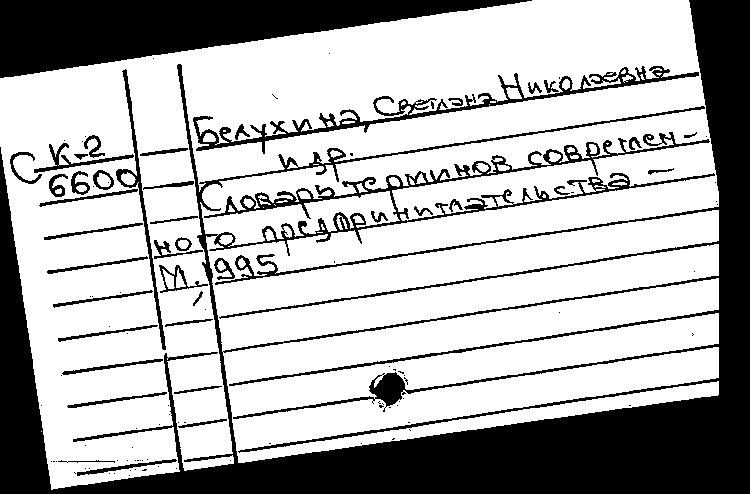 С К-2
6600
Белухина, Светлана Николаевна
и др.
Словарь терминов современ-
ного предпринимательства. —
М., 1995